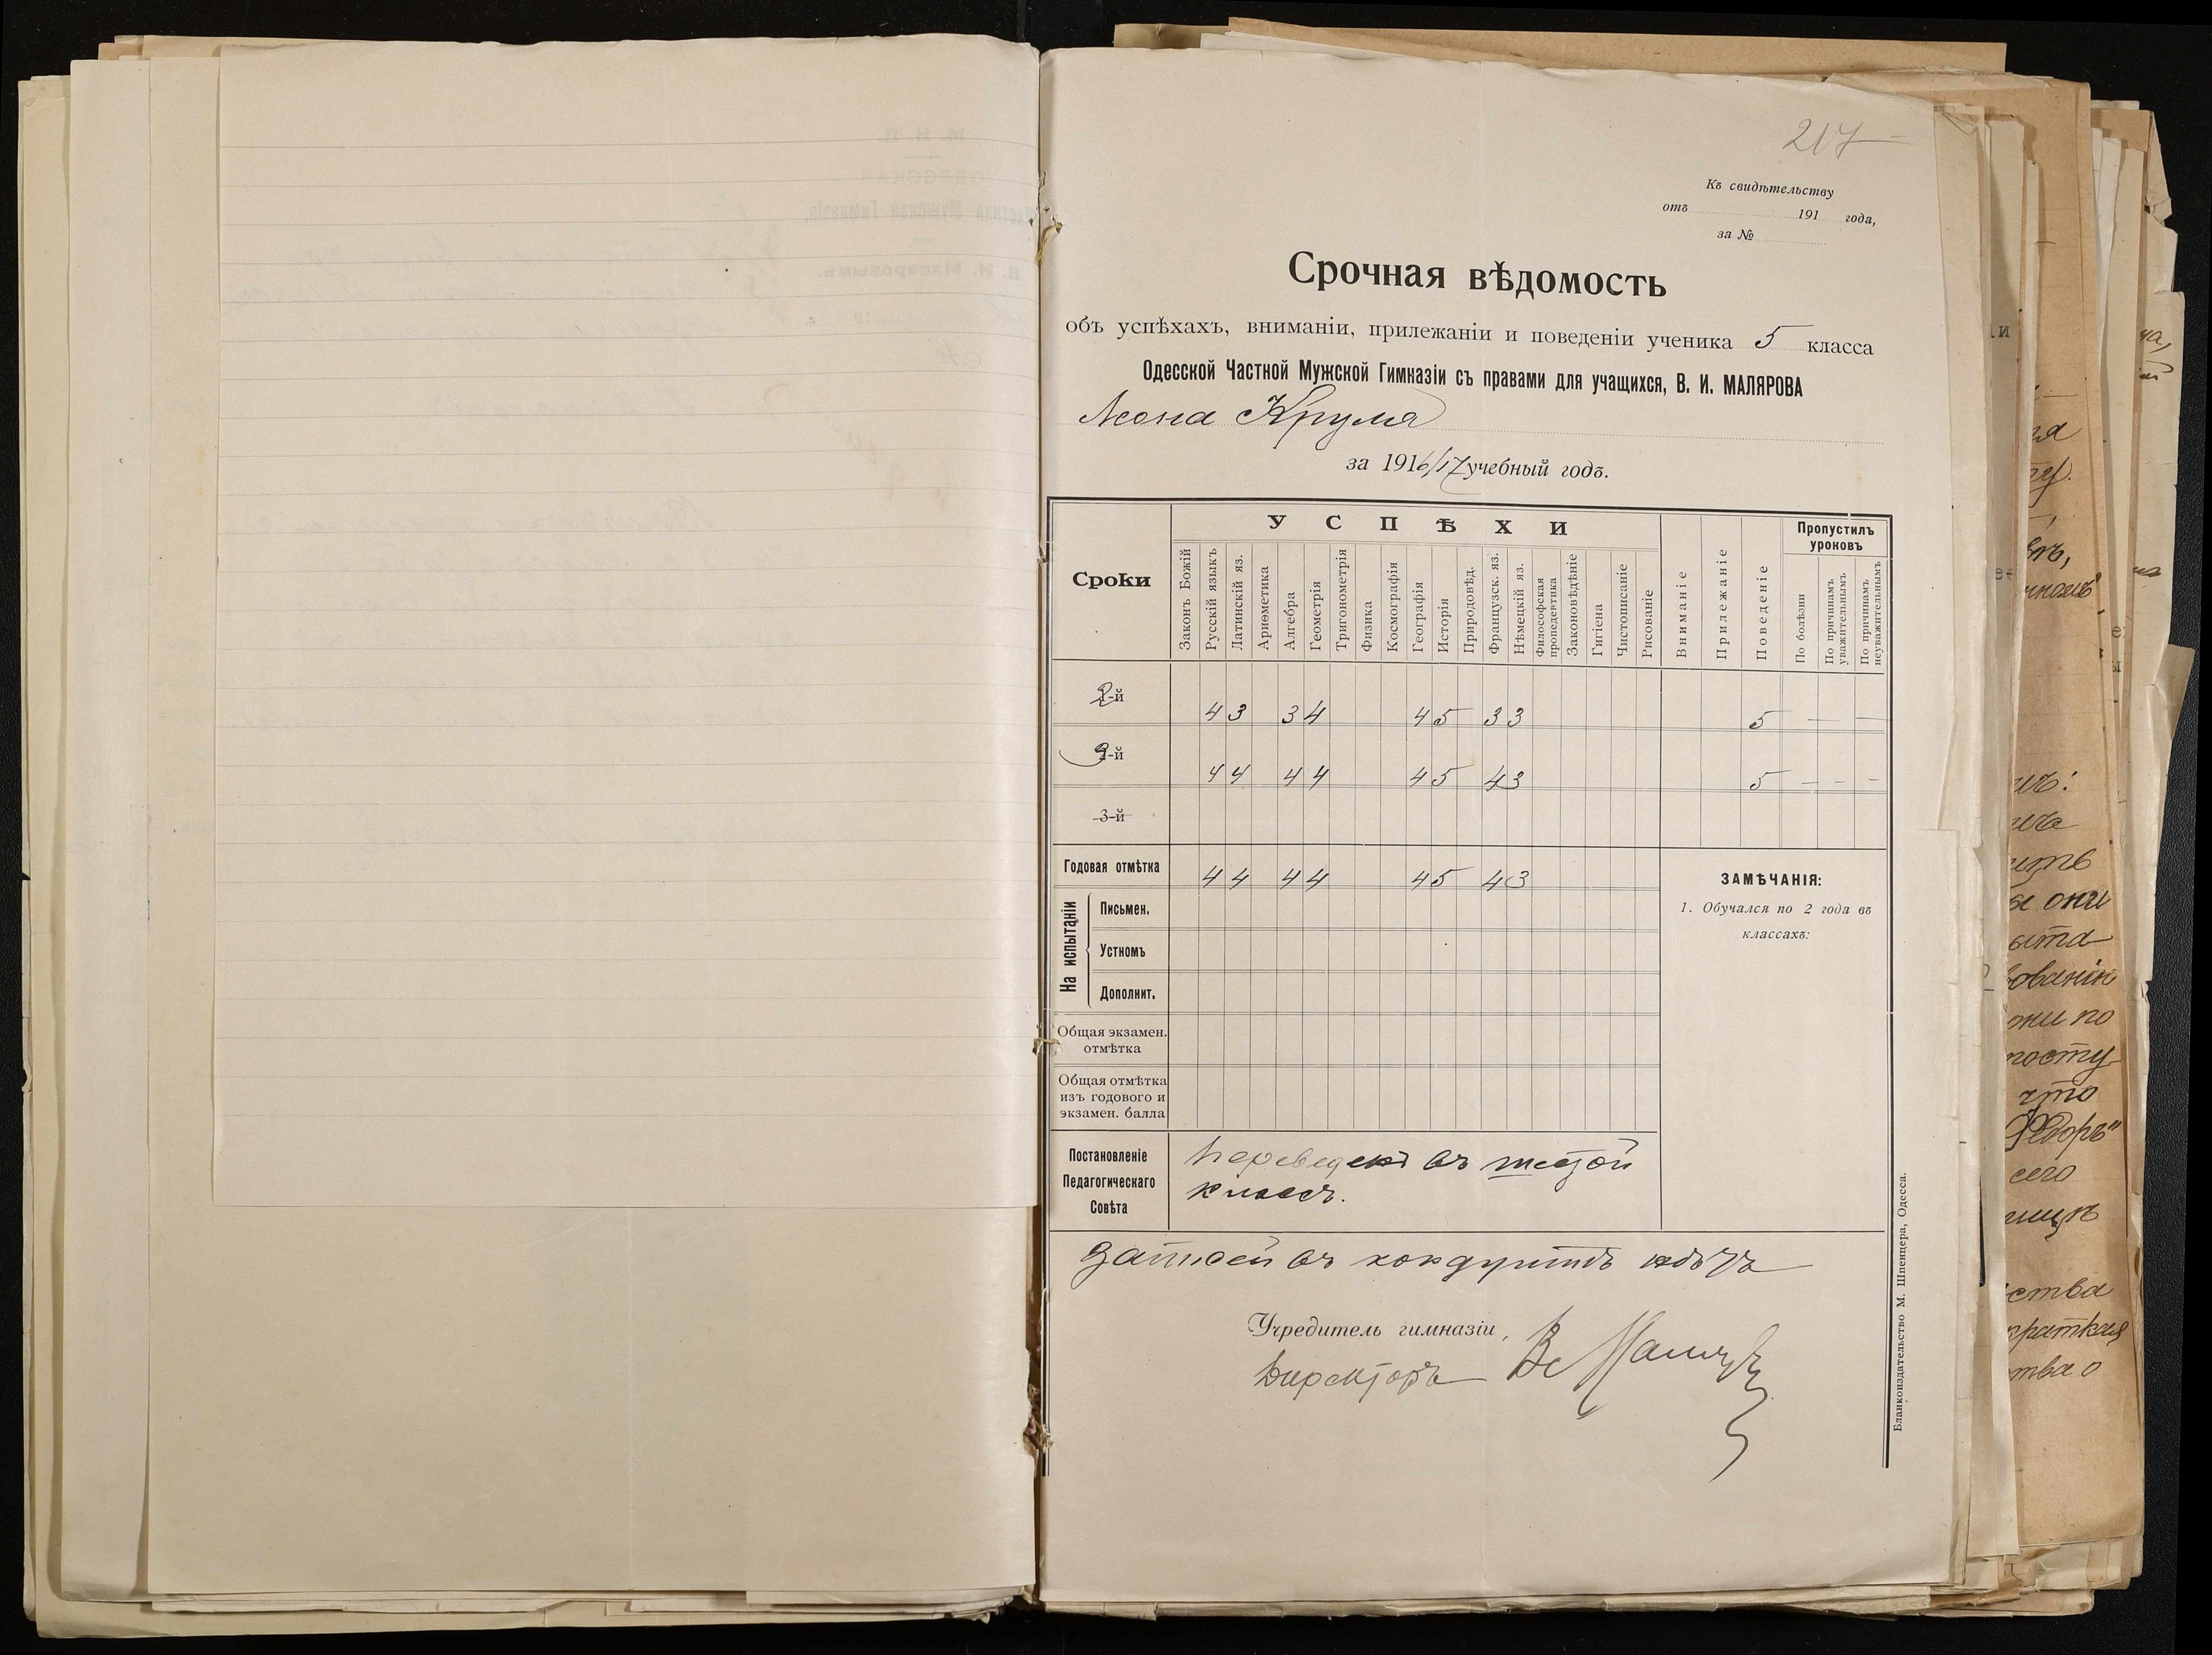 217
Къ свидѣтельству
отъ 191 года,
за №
Срочная вѣдомость
объ успѣхахъ, вниманіи, прилежаніи и поведеніи ученика 5 класса
Одесской Частной Мужской Гимназіи съ правами для учащихся, В. И. МАЛЯРОВА
Леона Круля
за 1916/17 учебный годъ.
Сроки
УСПѢХИ
Законъ Божій
Русскій языкъ
Латинскій яз.
Ариѳметика
Алгебра
Геометрія
Тригонометрія
Физика
Космографія
Географія
Исторія
Природовѣд.
Французск. яз.
Нѣмецкій яз.
Философская пропедевтика
Законовѣдѣніе
Гигіена
Чистописаніе
Рисованіе
Вниманіе
Прилежаніе
Поведеніе
Пропустилъ уроковъ
По болѣзни
По причинамъ уважительнымъ
По причинамъ неуважительнымъ
2-й 4 3 3 4 4 5 3 3 5 — —
-й 4 4 4 4 4 5 4 3 5 — — —
3-й
Годовая отмѣтка 4 4 4 4 4 5 4 3
На испытаніи
Письмен.
Устномъ
Дополнит.
Общая экзамен.
отмѣтка
Общая отмѣтка
изъ годового и
экзамен. балла
ЗАМѢЧАНІЯ:
1. Обучался по 2 года въ
классахъ:
Постановленіе
Педагогическаго
Совѣта
Переведенъ въ шестой
классъ.
Записей въ кондуитѣ нѣтъ
Учредитель гимназіи,
Директоръ
Бланкоиздательство М. Шпенцера, Одесса.